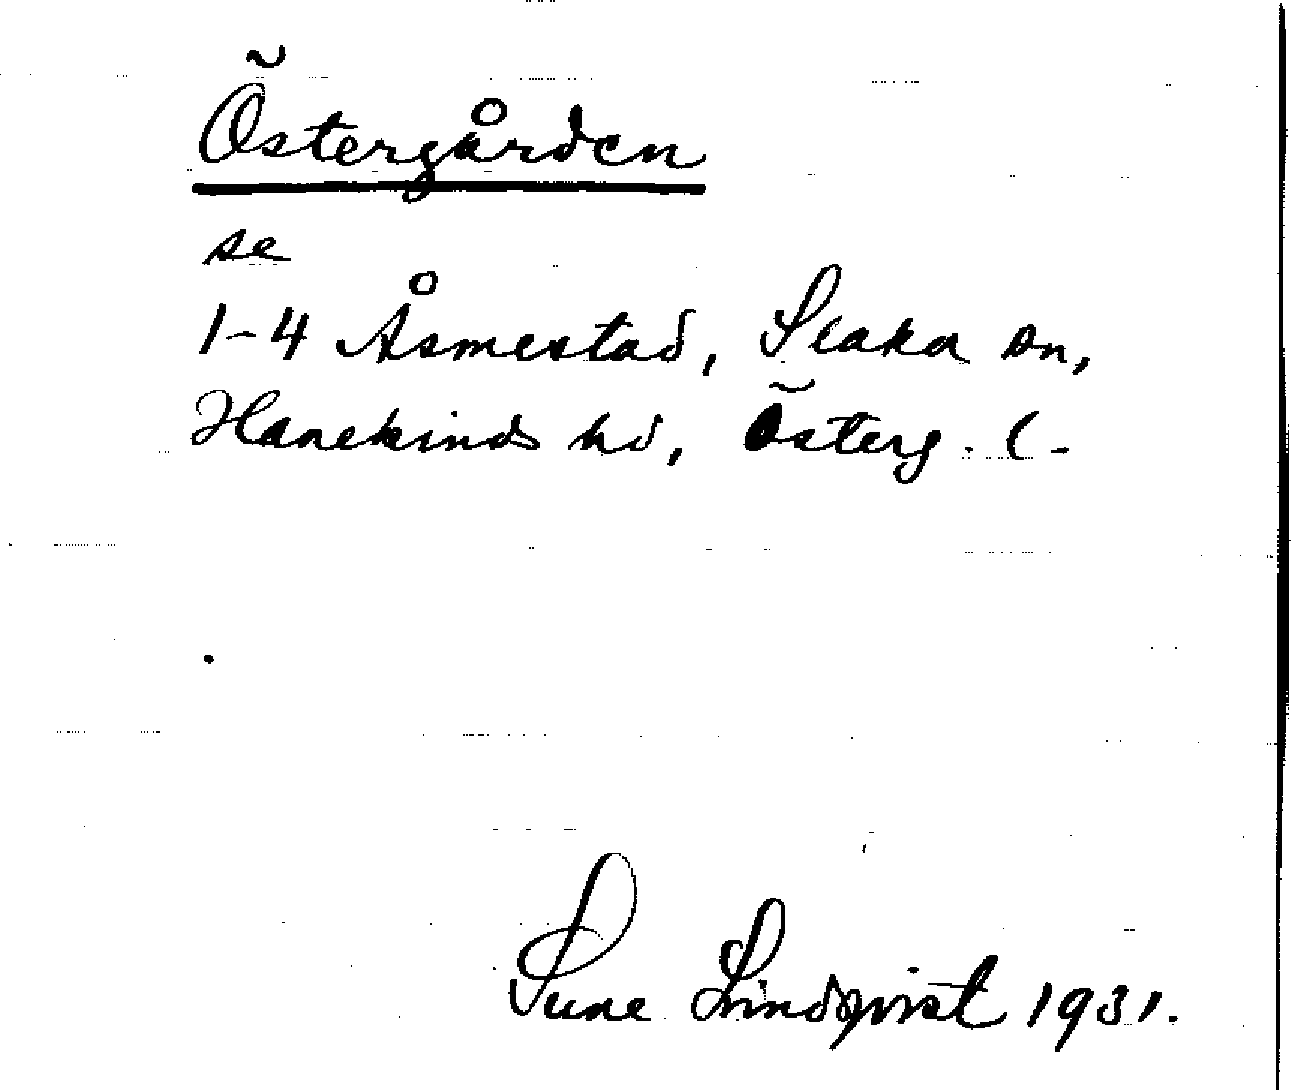 Östergården
se
1-4 Åsmestad, Slaka sn,
Hanekinds hd, Österg. l.
Sune Lindqvist 1931.